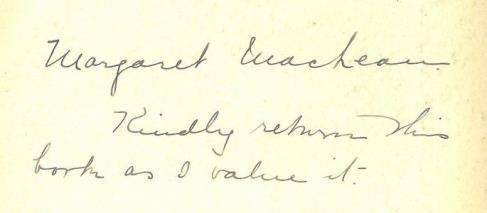 Margaret MacLean.
Kindly return this
book as I value it.